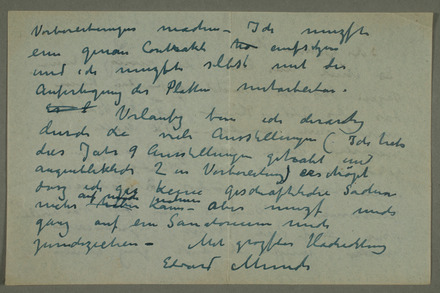 Vorbereitungen machen – Ich müsste
ein genau Contrakt aufsetzen
und ich müsste selbst mit der
Anfertigung der Platten mitarbeiten.
Vorläufig bin ich derartig
durch die viele Ausstellungen (Ich habe
dies Jahr 9 Ausstellungen gehabt und
augenblicklich 2 in Vorbereitung) erschöpft
dass ich gar keine geschäftliche Sachen
mehr kann – aber muss mich
ganz auf ein Sanatorium mich
zurückziehen – Mit grösster Hochachtung
Edvard Munch